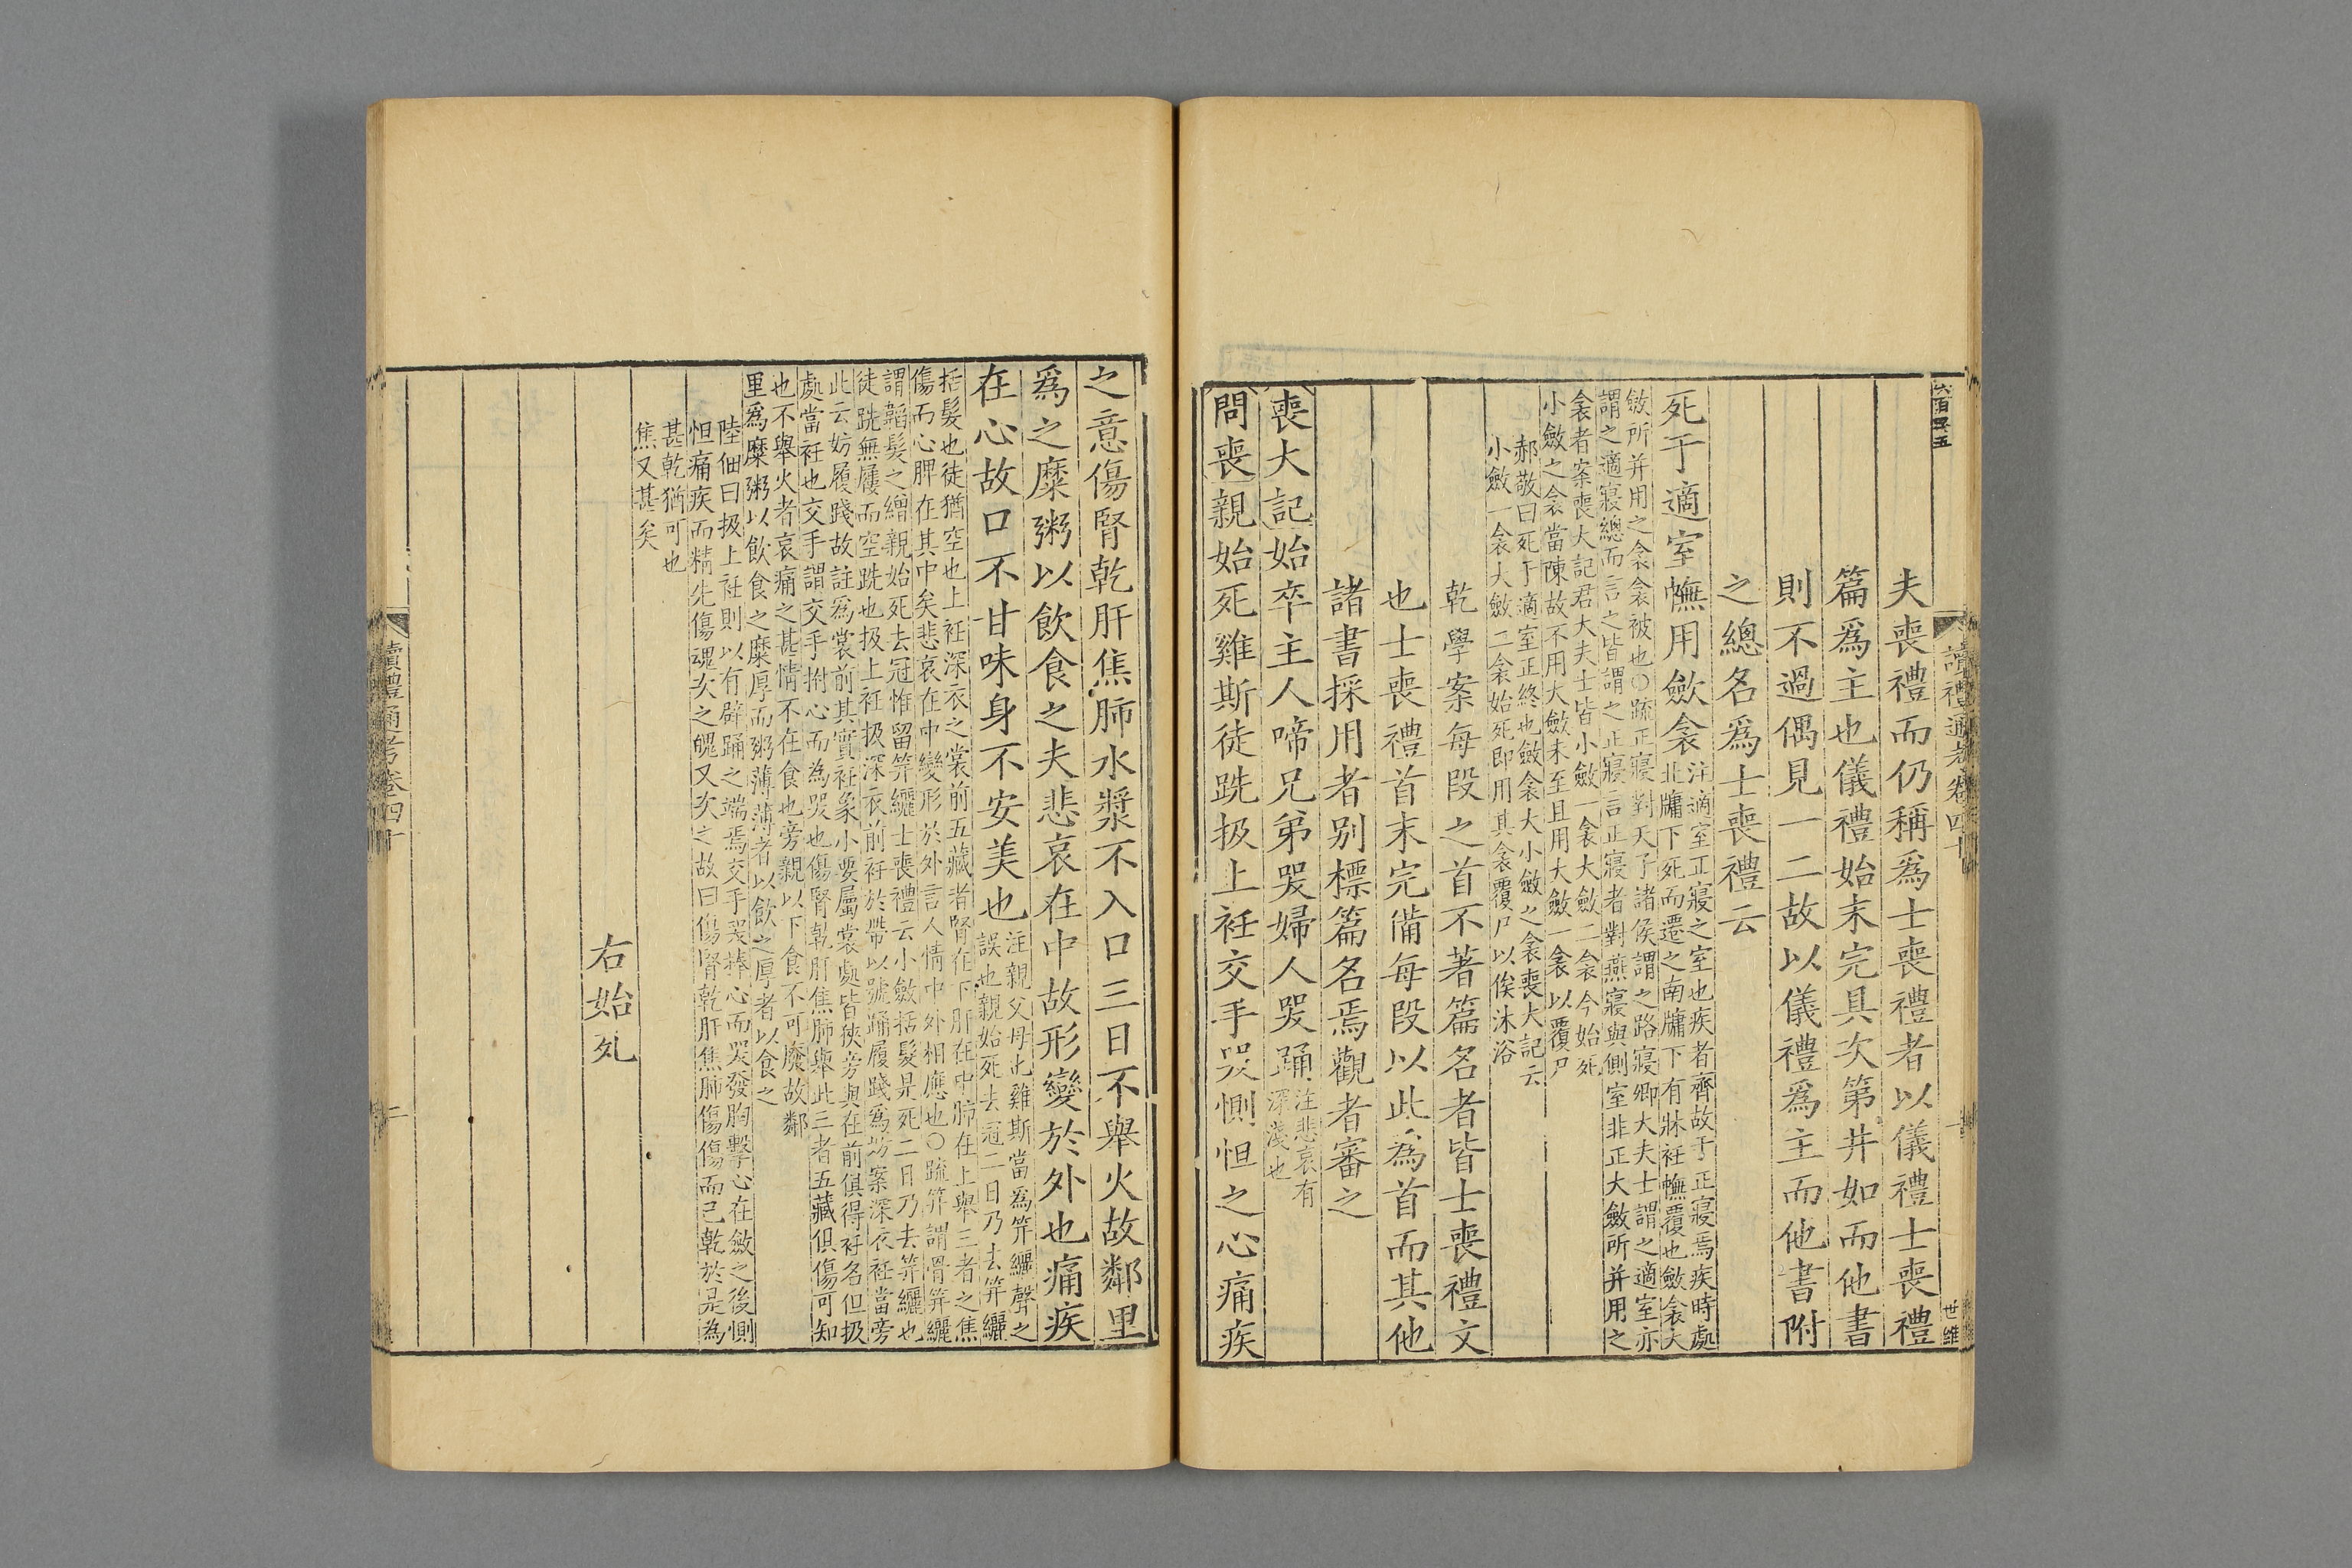 六百四五
讀禮通考卷四十
一
世維
夫喪禮而仍稱爲士喪禮者以儀禮士喪禮
篇爲主也儀禮始末完具次第井如而他書
則不過偶見一二故以儀禮爲主而他書附
之總名爲士喪禮云
死于適室幠用斂衾
注適室正寢之室也疾者齊故于正寢焉疾時處
北牖下死而遷之南牖下有牀衽幠覆也斂衾大
斂所并用之衾衾被也○疏正寢對天子諸侯謂之路寢卿大夫士謂之適室亦
謂之適寢總而言之皆謂之正寢言正寢者對燕寢與側室非正大斂所并用之
衾者案喪大記君大夫士皆小斂一衾大斂二衾今始死
小斂之衾當陳故不用大斂未至且用大斂一衾以覆尸
郝敬曰死于適室正終也斂衾大小斂之衾喪大記云
小斂一衾大斂二衾始死即用其衾覆尸以俟沐浴
乾學案每段之首不著篇名者皆士喪禮文
也士喪禮首末完備每段以此爲首而其他
諸書採用者别標篇名焉觀者審之
喪大記始卒主人啼兄弟哭婦人哭踊
注悲哀有
深淺也
問喪親始死雞斯徒跣扱上衽交手哭惻怛之心痛疾
之意傷腎乾肝焦肺水漿不入口三日不舉火故鄰里
爲之糜粥以飲食之夫悲哀在中故形變於外也痛疾
在心故口不甘味身不安美也
注親父母也雞斯當爲笄纚聲之
誤也親始死去冠二日乃去笄纚
括髮也徒猶空也上衽深衣之裳前五藏者腎在下肝在中肺在上舉三者之焦
傷而心脾在其中矣悲哀在中變形於外言人情中外相應也○疏笄謂骨笄纚
謂韜髮之繒親始死去冠惟留笄纚士喪禮云小斂括髮是死二日乃去笄纚也
徒跣無屨而空跣也扱上衽扱深衣前衽於帶以號踊履踐爲妨案深衣衽當旁
此云妨履踐故註爲裳前其實衽象小要屬裳處皆狹旁與在前俱得衽名但扱
處當衽也交手謂交手拊心而為哭也傷腎乾肝焦肺舉此三者五藏俱傷可知
也不舉火者哀痛之甚情不在食也旁親以下食不可廢故鄰
里爲糜粥以飲食之糜厚而粥薄薄者以飲之厚者以食之
陸佃曰扱上衽則以有辟踊之端焉交手哭捧心而哭發胸擊心在斂之後惻
怛痛疾而精先傷魂次之魄又次之故曰傷腎乾肝焦肺傷傷而已乾於是為
甚乾猶可也
焦又甚矣
右始死
讀禮通考卷四十
二